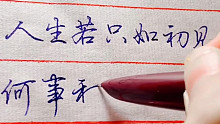 人生若只如初见
何事